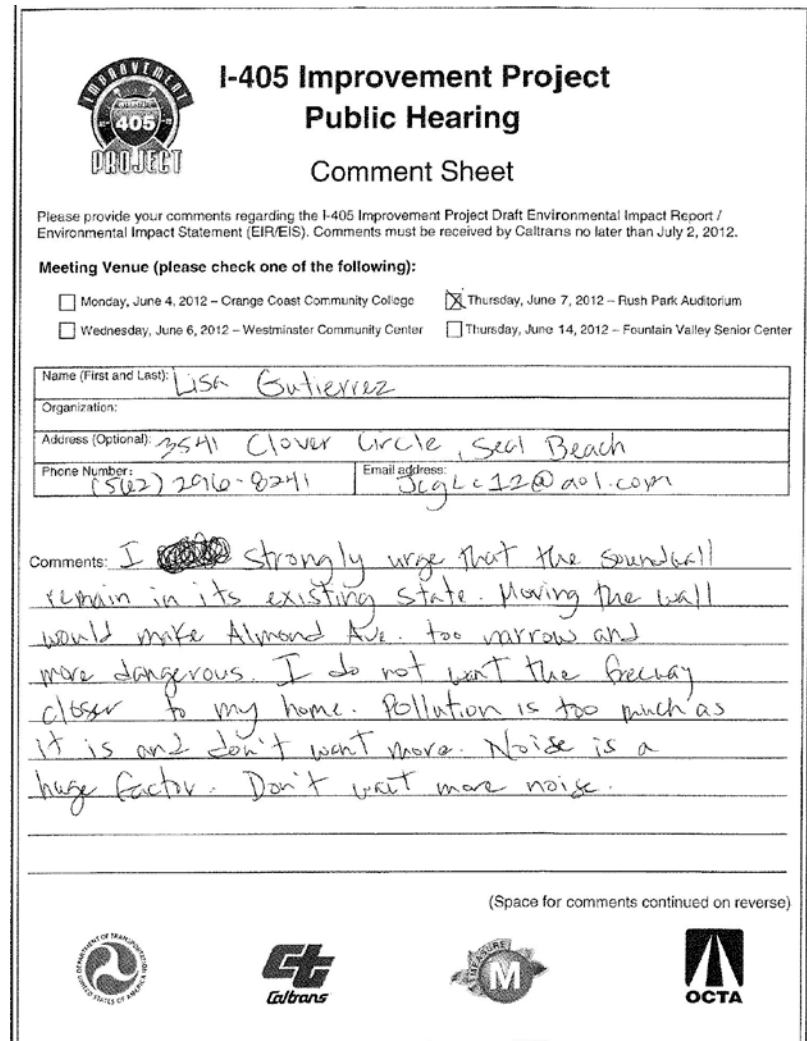 IMPROVEMENT
405
PROJECT
I-405 Improvement Project
Public Hearing
Comment Sheet
Please provide your comments regarding the I-405 Improvement Project Draft Environmental Impact Report /
Environmental Impact Statement (EIR/EIS). Comments must be received by Caltrans no later than July 2, 2012.
Meeting Venue (please check one of the following):
Monday, June 4, 2012 – Orange Coast Community College
Thursday, June 7, 2012 – Rush Park Auditorium
Wednesday, June 6, 2012 – Westminster Community Center
Thursday, June 14, 2012 – Fountain Valley Senior Center
Name (First and Last): Lisa Gutierrez
Organization:
Address (Optional): 3541 Clover Circle, Seal Beach
Phone Number: (562) 296-8241
Email address: JcgLc12@aol.com
Comments: I strongly urge that the soundwall
remain in its existing state. Moving the wall
would make Almond Ave. too narrow and
more dangerous. I do not want the freeway
closer to my home. Pollution is too much as
it is and don't want more. Noise is a
huge factor. Don't want more noise.
(Space for comments continued on reverse)
DEPARTMENT OF TRANSPORTATION
UNITED STATES OF AMERICA
Caltrans
MEASURE
M
OCTA